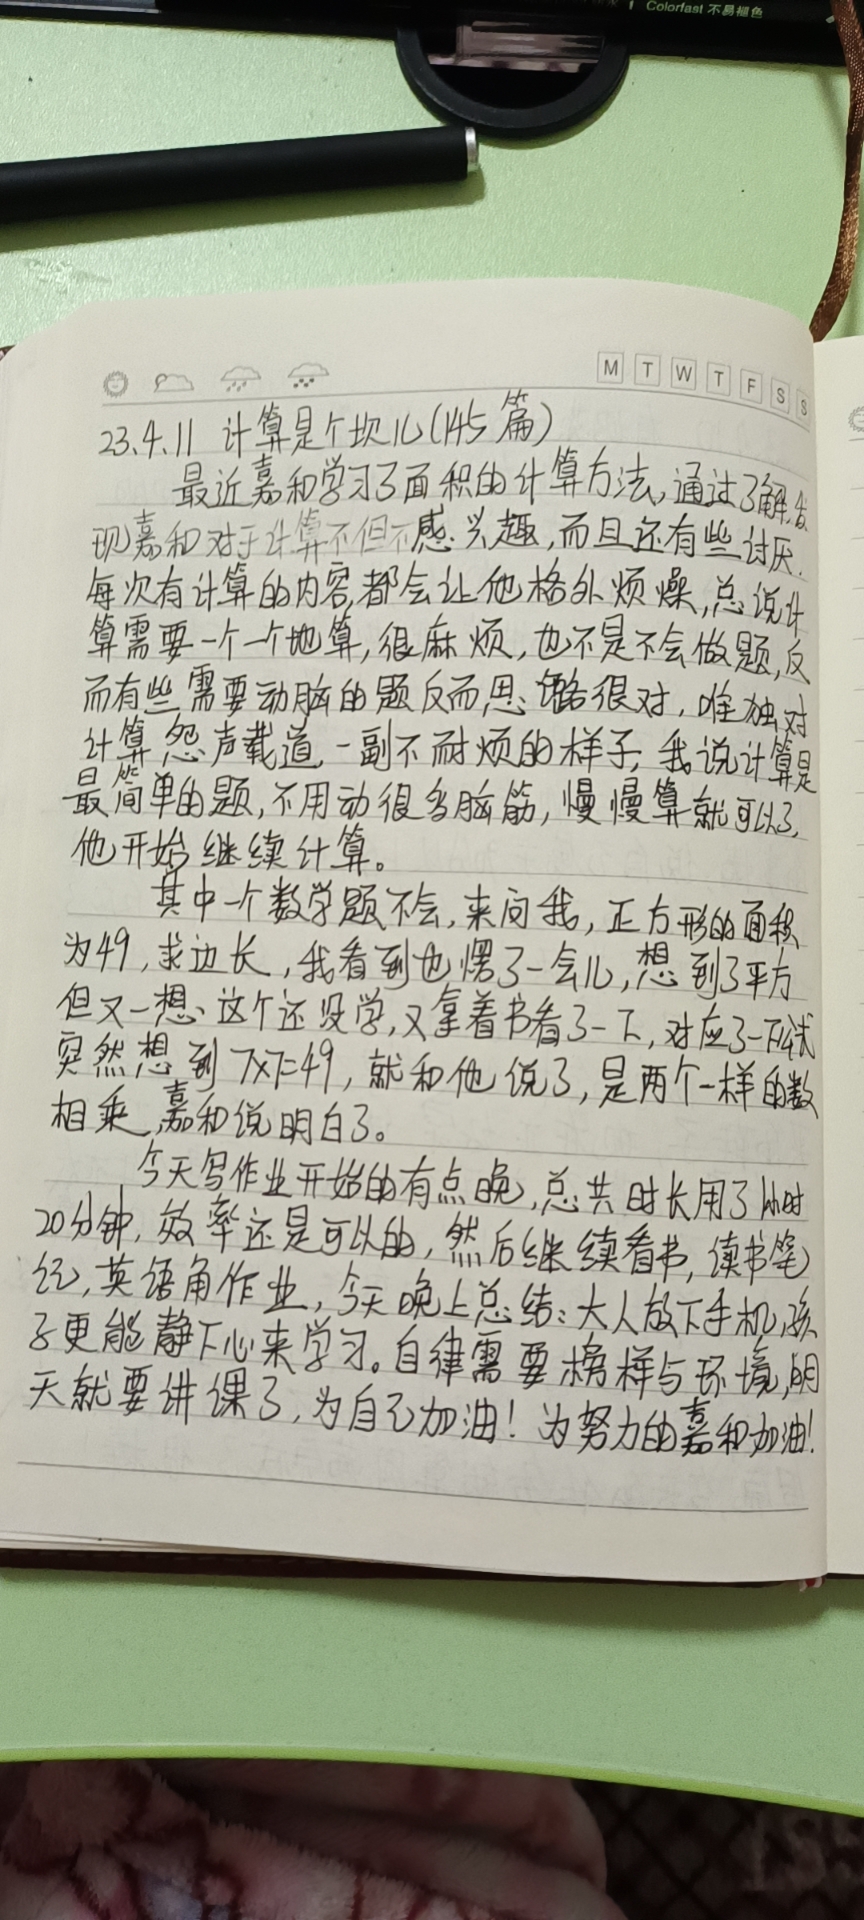 Colorfast 不易褪色
M T W T F S S
23.4.11 计算是个坎儿(145篇)
最近嘉和学习了面积的计算方法,通过了解,发
现嘉和对于计算不但不感兴趣,而且还有些讨厌.
每次有计算的内容,都会让他格外烦燥,总说计
算需要一个一个地算,很麻烦,也不是不会做题,反
而有些需要动脑的题反而思路很对,唯独对
计算怨声载道,一副不耐烦的样子,我说计算是
最简单的题,不用动很多脑筋,慢慢算就可以了,
他开始继续计算。
其中一个数学题不会,来问我,正方形的面积
为49,求边长,我看到也愣了一会儿,想到了平方
但又一想,这个还没学,又拿着书看了一下,对应了一下公式
突然想到7x7=49,就和他说了,是两个一样的数
相乘,嘉和说明白了。
今天写作业开始的有点晚,总共时长用了1小时
20分钟,效率还是可以的,然后继续看书,读书笔
记,英语角作业,今天晚上总结:大人放下手机,孩
子更能静下心来学习。自律需要榜样与环境,明
天就要讲课了,为自己加油!为努力的嘉和加油!